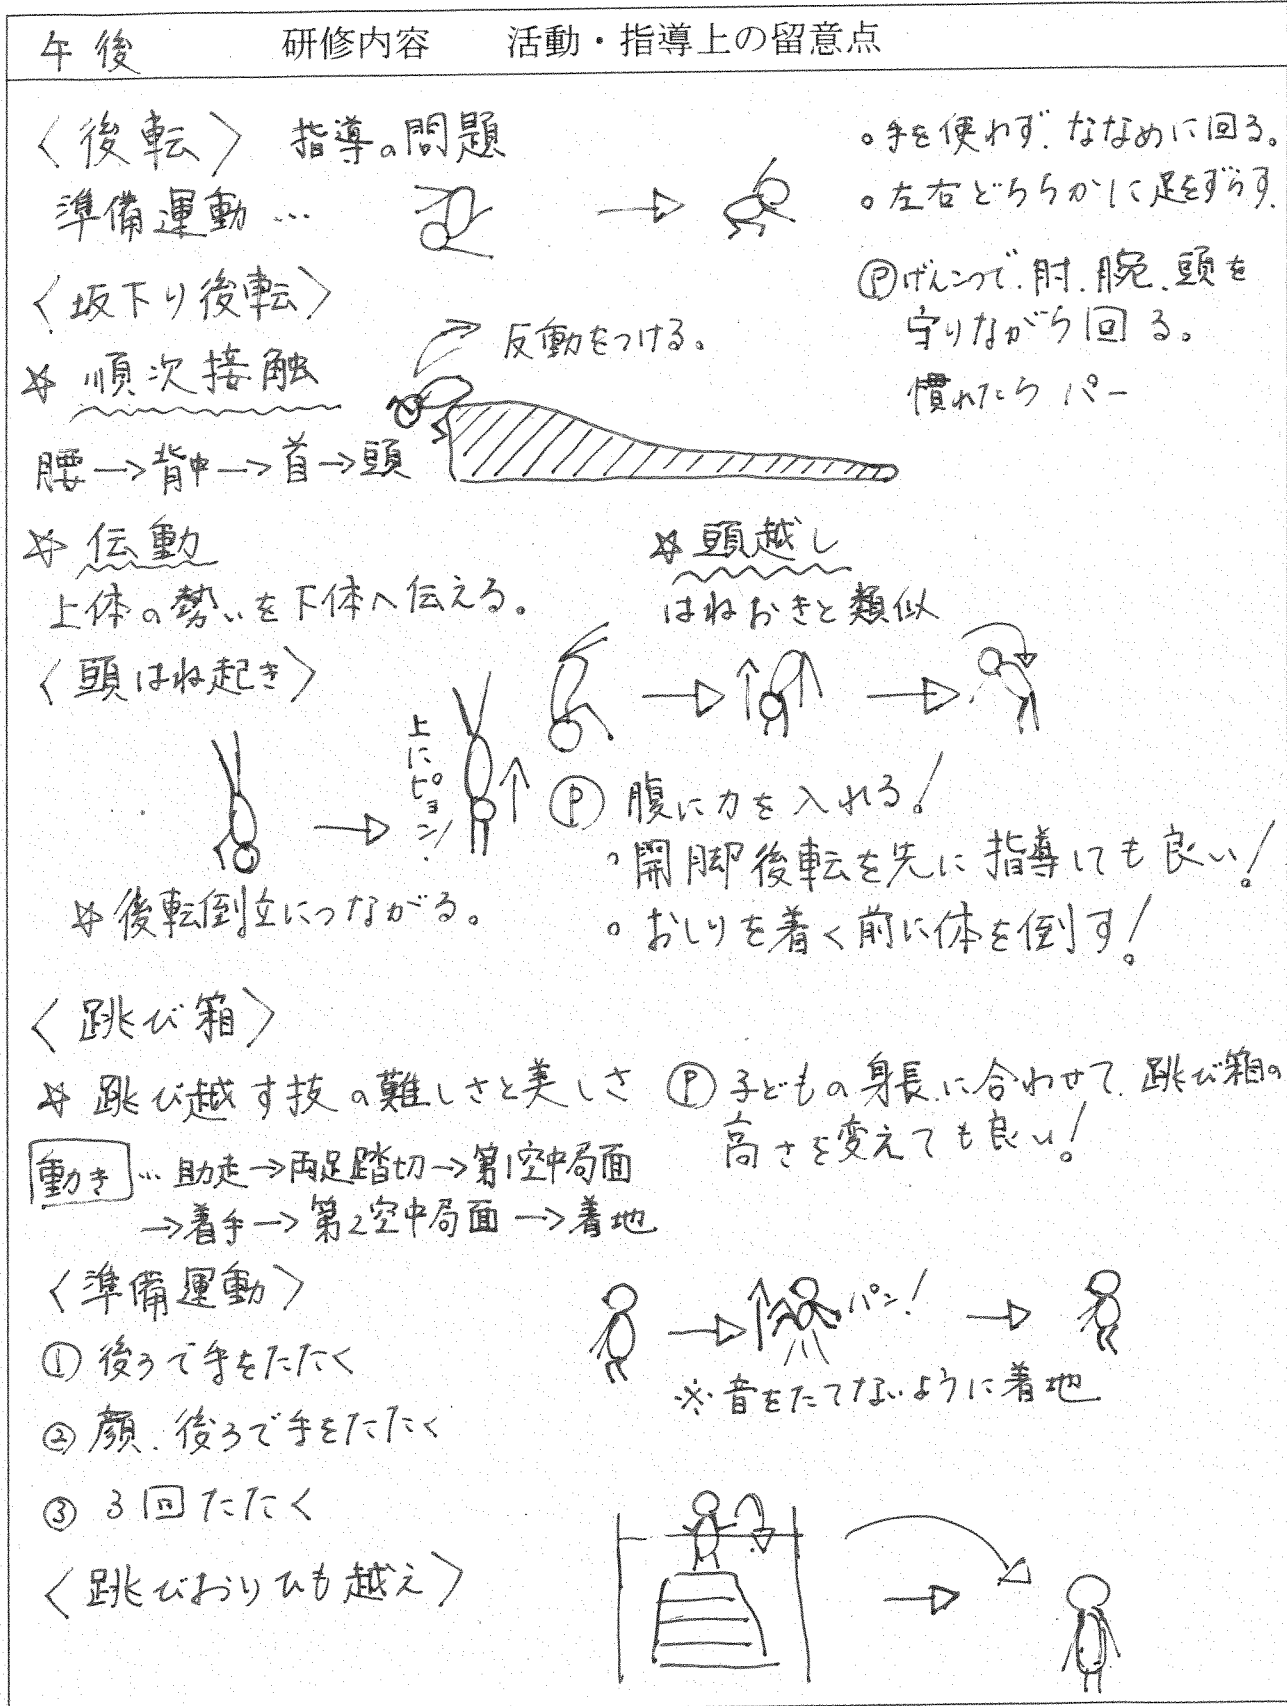 午後 研修内容 活動・指導上の留意点
〈後転〉 指導の問題
準備運動…
。手を使わず、ななめに回る。
。左右どちらかに足をずらす、
Ⓟげんこつで、肘、腕、頭を
守りながら回る。
慣れたら パー
〈坂下り後転〉
反動をつける。
☆ 順次接触
腰→背中→首→頭
☆ 伝動
上体の勢いを下体へ伝える。
☆ 頭越し
はねおきと類似
〈頭はね起き〉
上にピョン!
☆後転倒立につながる。
Ⓟ 腹に力を入れる!
。開脚後転を先に指導しても良い!
。おしりを着く前に体を倒す!
〈跳び箱〉
☆ 跳び越す技の難しさと美しさ
Ⓟ 子どもの身長に合わせて、跳び箱の
高さを変えても良い!
動き … 助走→両足踏切→第1空中局面
→着手→第2空中局面→着地
〈準備運動〉
① 後ろで手をたたく
② 顔、後ろで手をたたく
③ 3回たたく
パン!
※音をたてないように着地
〈跳びおりひも越え〉